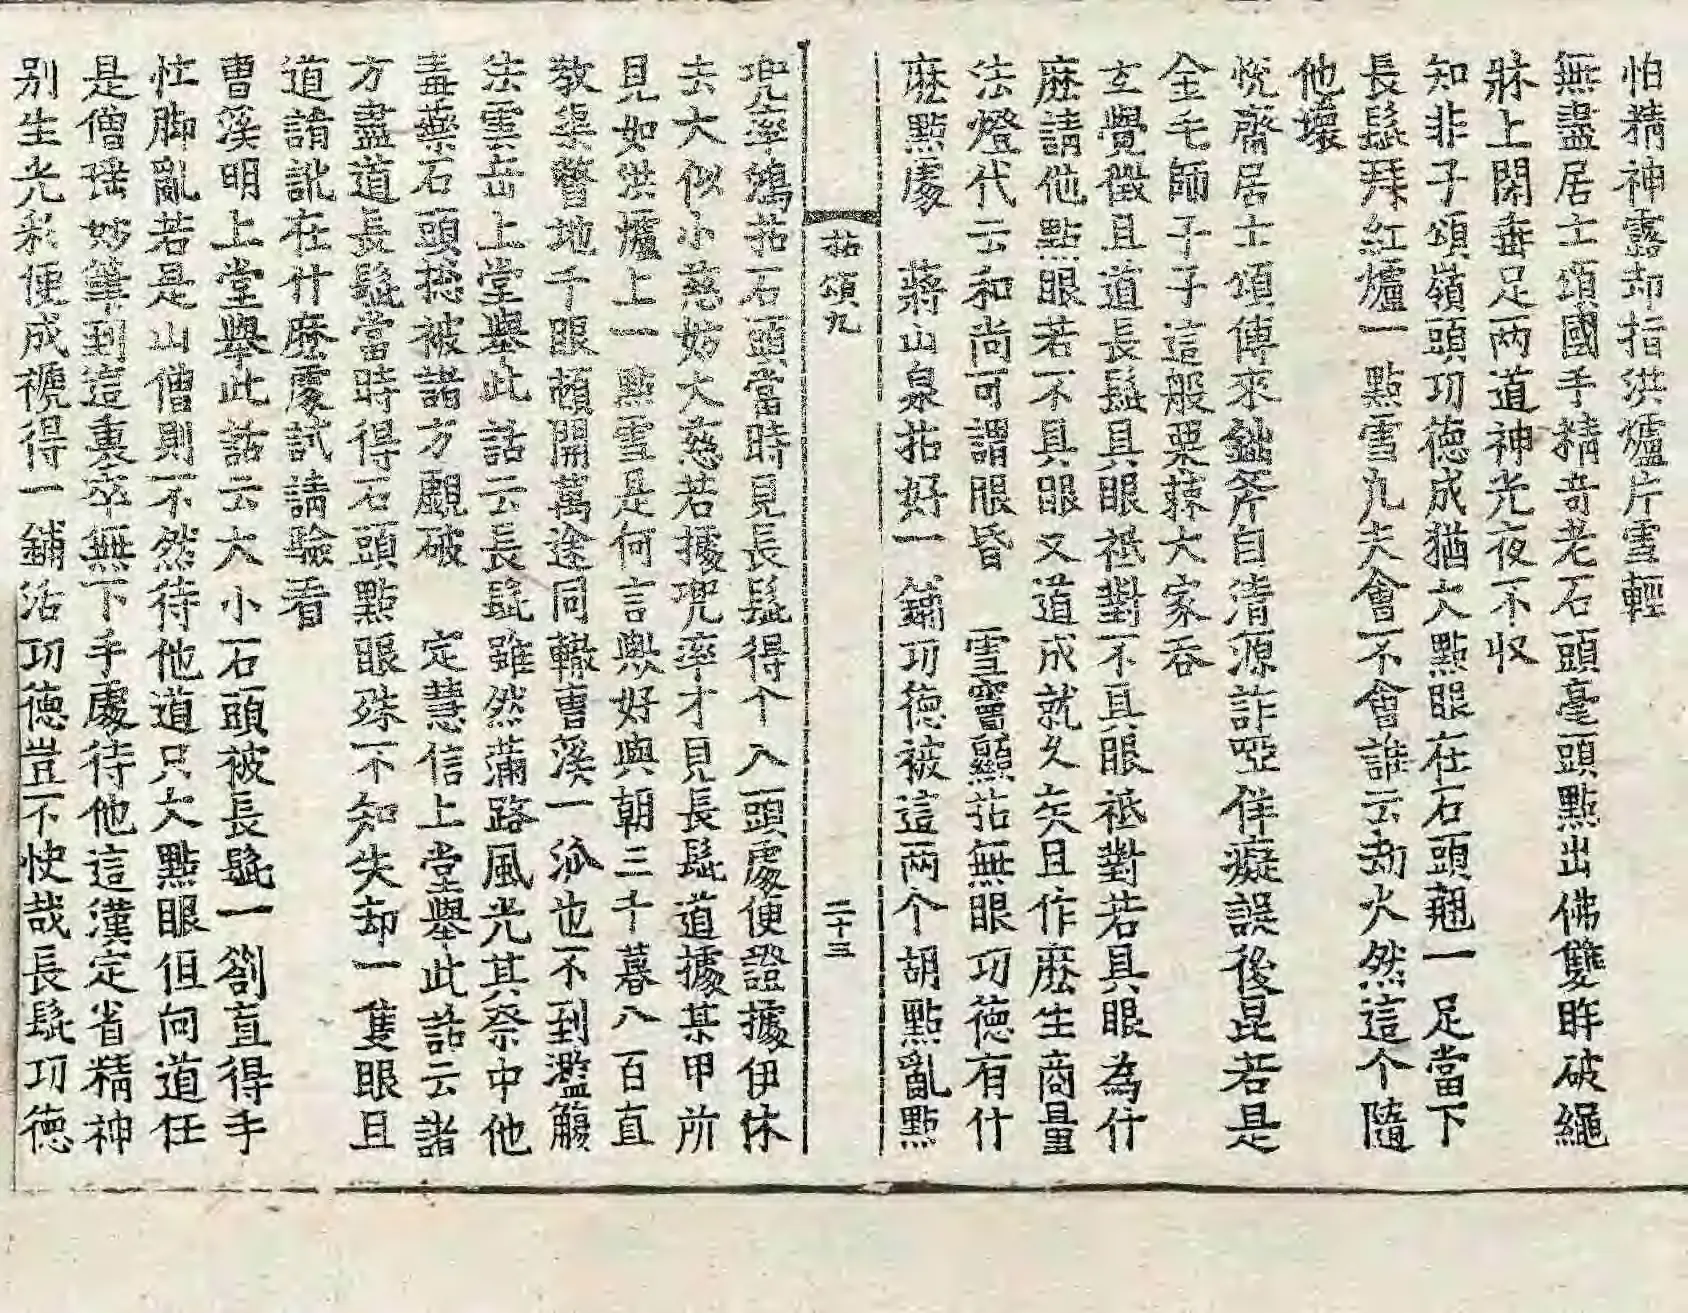 怕精神露却指洪爐片雪輕
無盡居士頌國手精奇老石頭毫頭點出佛雙眸破繩
牀上閑垂足兩道神光夜不収
知非子頌嶺頭功德成猶欠點眼在石頭翹一足當下
長髭拜紅爐一點雪凡夫會不會誰云劫火然這个隨
他壞
悅齋居士頌傳來鈯斧自清源詐啞佯癡誤後昆若是
金毛師子子這般栗蕀大家吞
玄覺徵且道長髭具眼祗對不具眼祗對若具眼為什
麽請他點眼若不具眼又道成就久矣且作麽生商量
法燈代云和尚可謂眼昏　雪竇顯拈無眼功德有什
麽點處　蔣山泉拈好一鋪功德被這兩个胡點亂點
拈頌九　二十三
兜率鴻拈石頭當時見長髭得个入頭處便證據伊休
去大似小慈妨大慈若據兜率才見長髭道據某甲所
見如洪爐上一點雪是何言歟好與朝三千暮八百直
敎渠瞥地千眼頓開萬途同轍曹溪一泒也不到濫觴
法雲岳上堂擧此話云長髭雖然蒲路風光其柰中他
毒藥石頭摠被諸方覰破　定慧信上堂擧此話云諸
方盡道長髭當時得石頭點眼殊不知失却一隻眼且
道誵訛在什麽處試請驗看
曹溪明上堂擧此話云大小石頭被長髭一劄直得手
忙脚亂若是山僧則不然待他道只欠點眼但向道任
是僧瑤妙筆到這裏卒無下手處待他這漢定省精神
别生光彩便成褫得一鋪活功德豈不快哉長髭功德